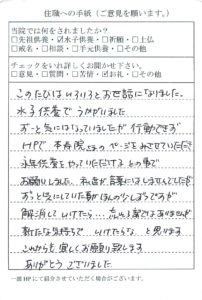 住職への手紙（ご意見を願います。）
当院では何をされましたか？
□先祖供養・☑水子供養・□祈願・□土仏
□戒名・□相談・□手元供養・□その他
チェックをいれ詳しくお聞かせ下さい。
□意見・□質問・□苦情・☑お礼・□その他
このたびはいろいろとお世話になりました。
水子供養でうかがいました
ずっと気にはなっていましたが行動できず
HPで さまのページをみさせていただき
永年供養をやっていただけるとの事で
お願いしました。私自が言葉にはしませんでしたが
ずっと気にしていた事がほんの少しようですが
解消していけたら… 忘れる事ではありませんが
新たな気持ちで いけたらな と思います
これからも宜しくお願い致します
ありがとうございました
一部HPにて紹介させていただく場合がございます。